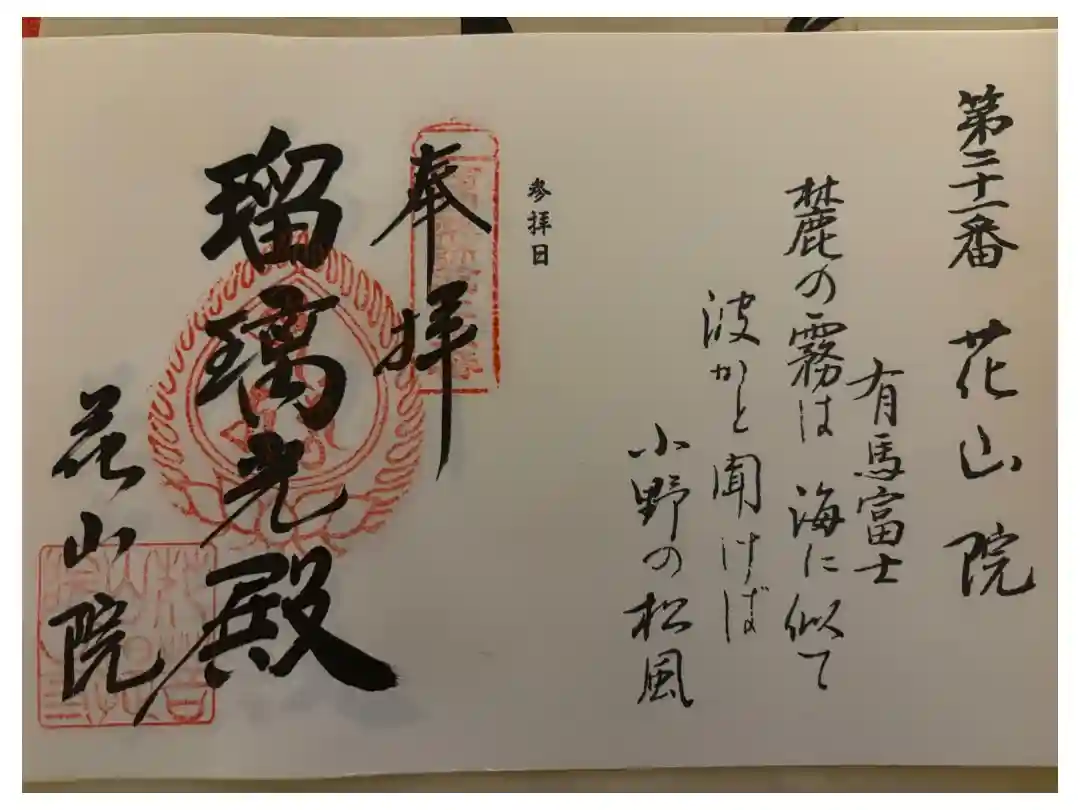 第二十一番 花山院
有馬富士
麓の霧は 海に似て
波かと聞けば
小野の松風
参拝日
奉拝
瑠璃光殿
花山院